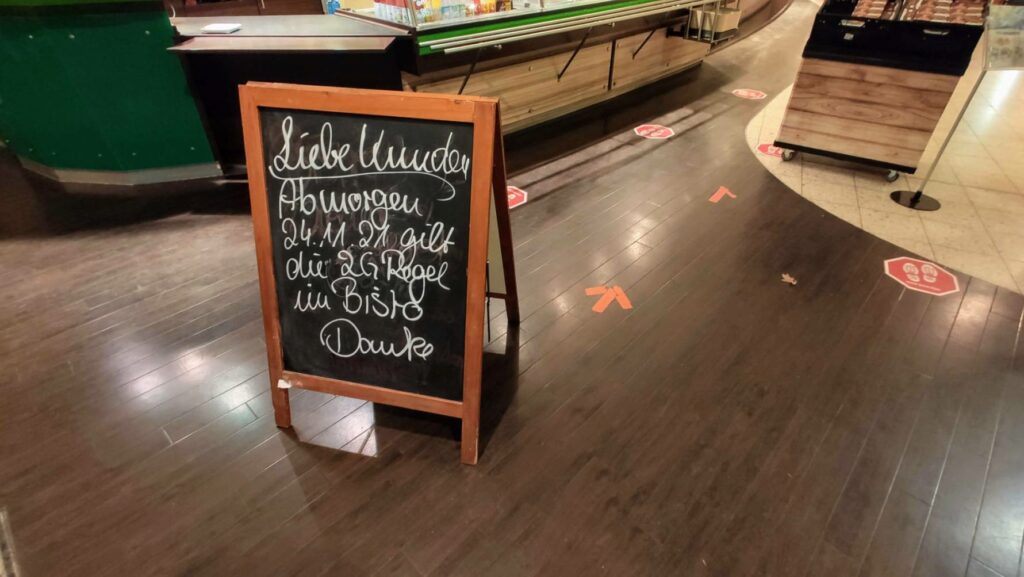 Liebe Kunden
Ab morgen
24.11.21 gilt
die 2G Regel
im Bistro
Danke